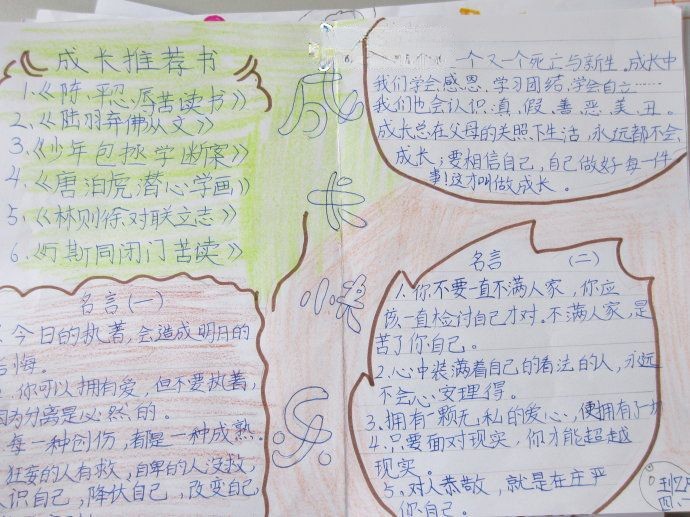 成长推荐书
1.《陈平忍辱苦读书》
2.《陆羽弃佛从文》
3.《少年包拯学断案》
4.《唐泊虎潜心学画》
5.《林则徐对联立志》
6.《万斯同闭门苦读》
成长小决乐
一个又一个死亡与新生。成长中
我们学会感恩、学习团结、学会自立……
我们也会认识真、假、善、恶、美、丑。
成长总在父母的关照下生活,永远都不会
成长;要相信自己,自己做好每一件
事!这才叫做成长。
名言(一)
今日的执著,会造成明日的
后悔。
你可以拥有爱,但不要执着,
因为分离是必然的。
每一种创伤,都是一种成熟。
狂妄的人有救,自卑的人没救,
认识自己,降伏自己,改变自己
名言 (二)
1.你不要一直不满人家,你应
该一直检讨自己才对。不满人家,是
苦了你自己。
2.心中装满着自己的看法的人,永远
不会心安理得。
3.拥有一颗无私的爱心,便拥有了一切
4.只要面对现实,你才能超越
现实。
5.对人恭敬,就是在庄严
你自己。